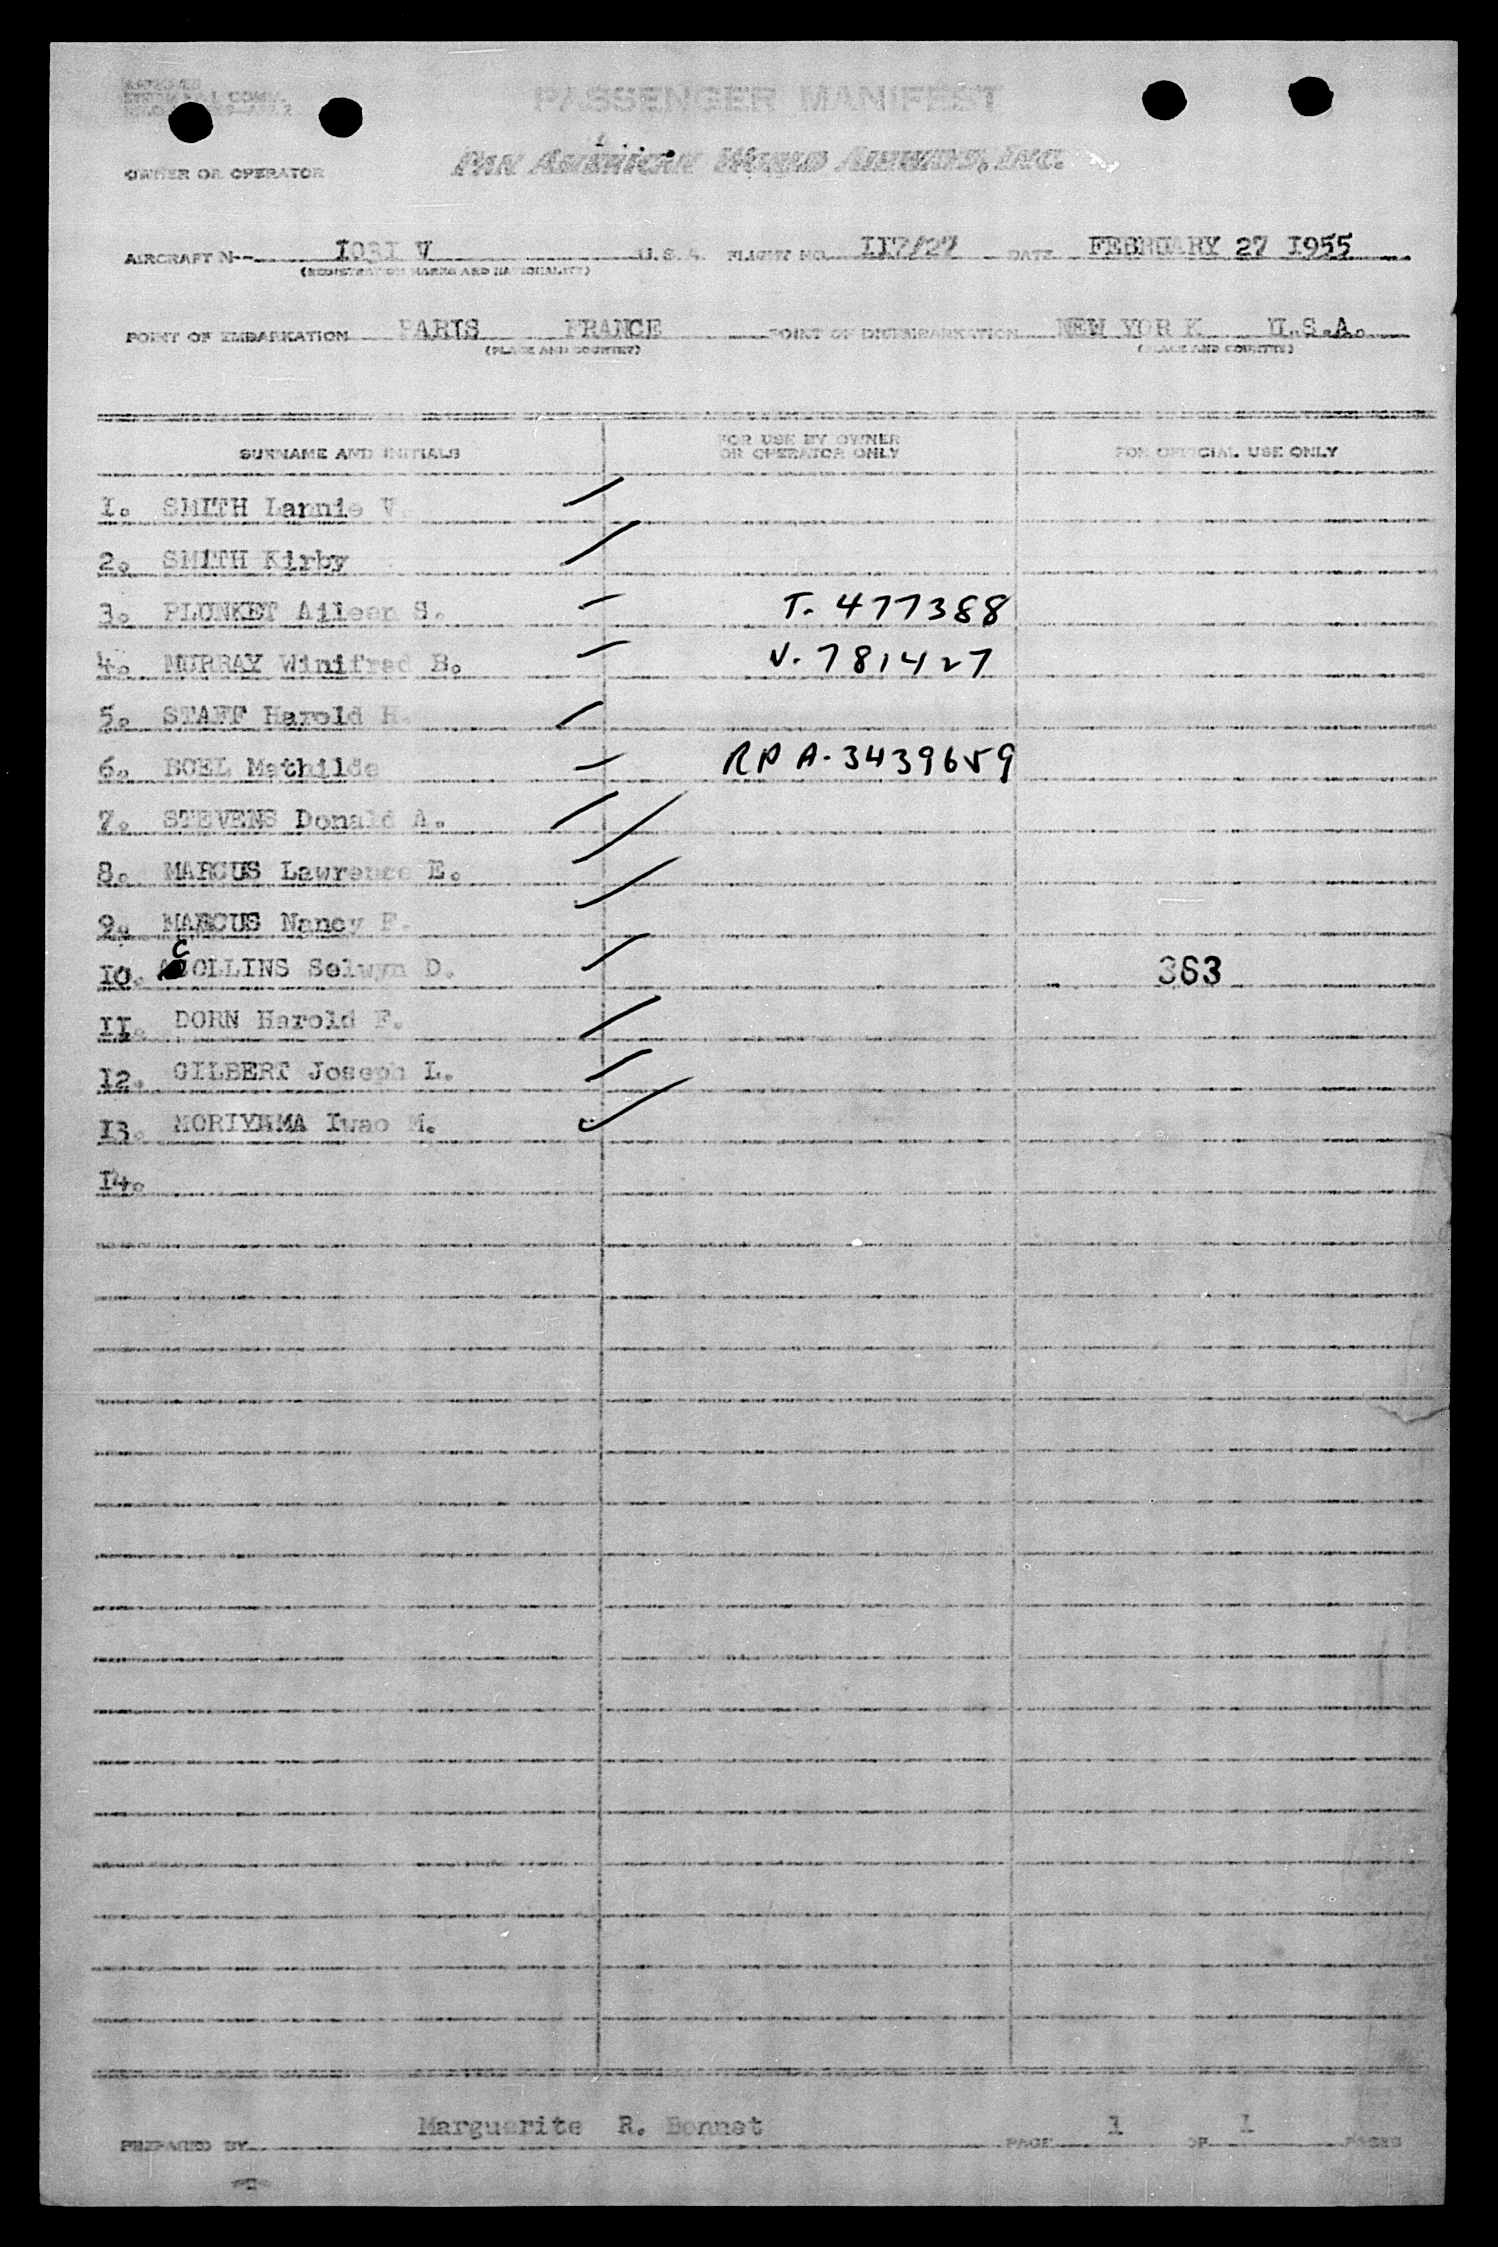 PASSENGER MANIFEST
PAN AMERICAN WORLD AIRWAYS, INC.
OWNER OR OPERATOR
AIRCRAFT N-- 1031 V U.S.A. FLIGHT NO. 117/27 DATE FEBRUARY 27 1955
(REGISTRATION MARKS AND NATIONALITY)
POINT OF EMBARKATION PARIS FRANCE POINT OF DISEMBARKATION NEW YORK U.S.A.
(PLACE AND COUNTRY) (PLACE AND COUNTRY)
SURNAME AND INITIALS FOR USE BY OWNER OR OPERATOR ONLY FOR OFFICIAL USE ONLY
1. SMITH Lannie V.
2. SMITH Kirby
3. PLUNKET Aileen S. T. 477388
4. MURRAY Winifred B. V. 781427
5. STAFF Harold H.
6. BOEL Mathilde RP A. 3439659
7. STEVENS Donald A.
8. MARCUS Lawrence E.
9. MARCUS Nancy F.
10. COLLINS Selwyn D. 363
11. DORN Harold F.
12. GILBERT Joseph L.
13. MORIYAMA Iwao M.
14.
PREPARED BY Marguerite R. Bonnet PAGE 1 OF 1 PAGES